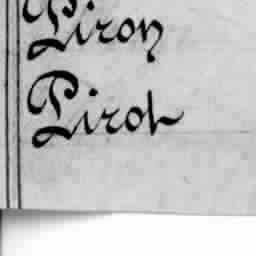 Piron
Pirot